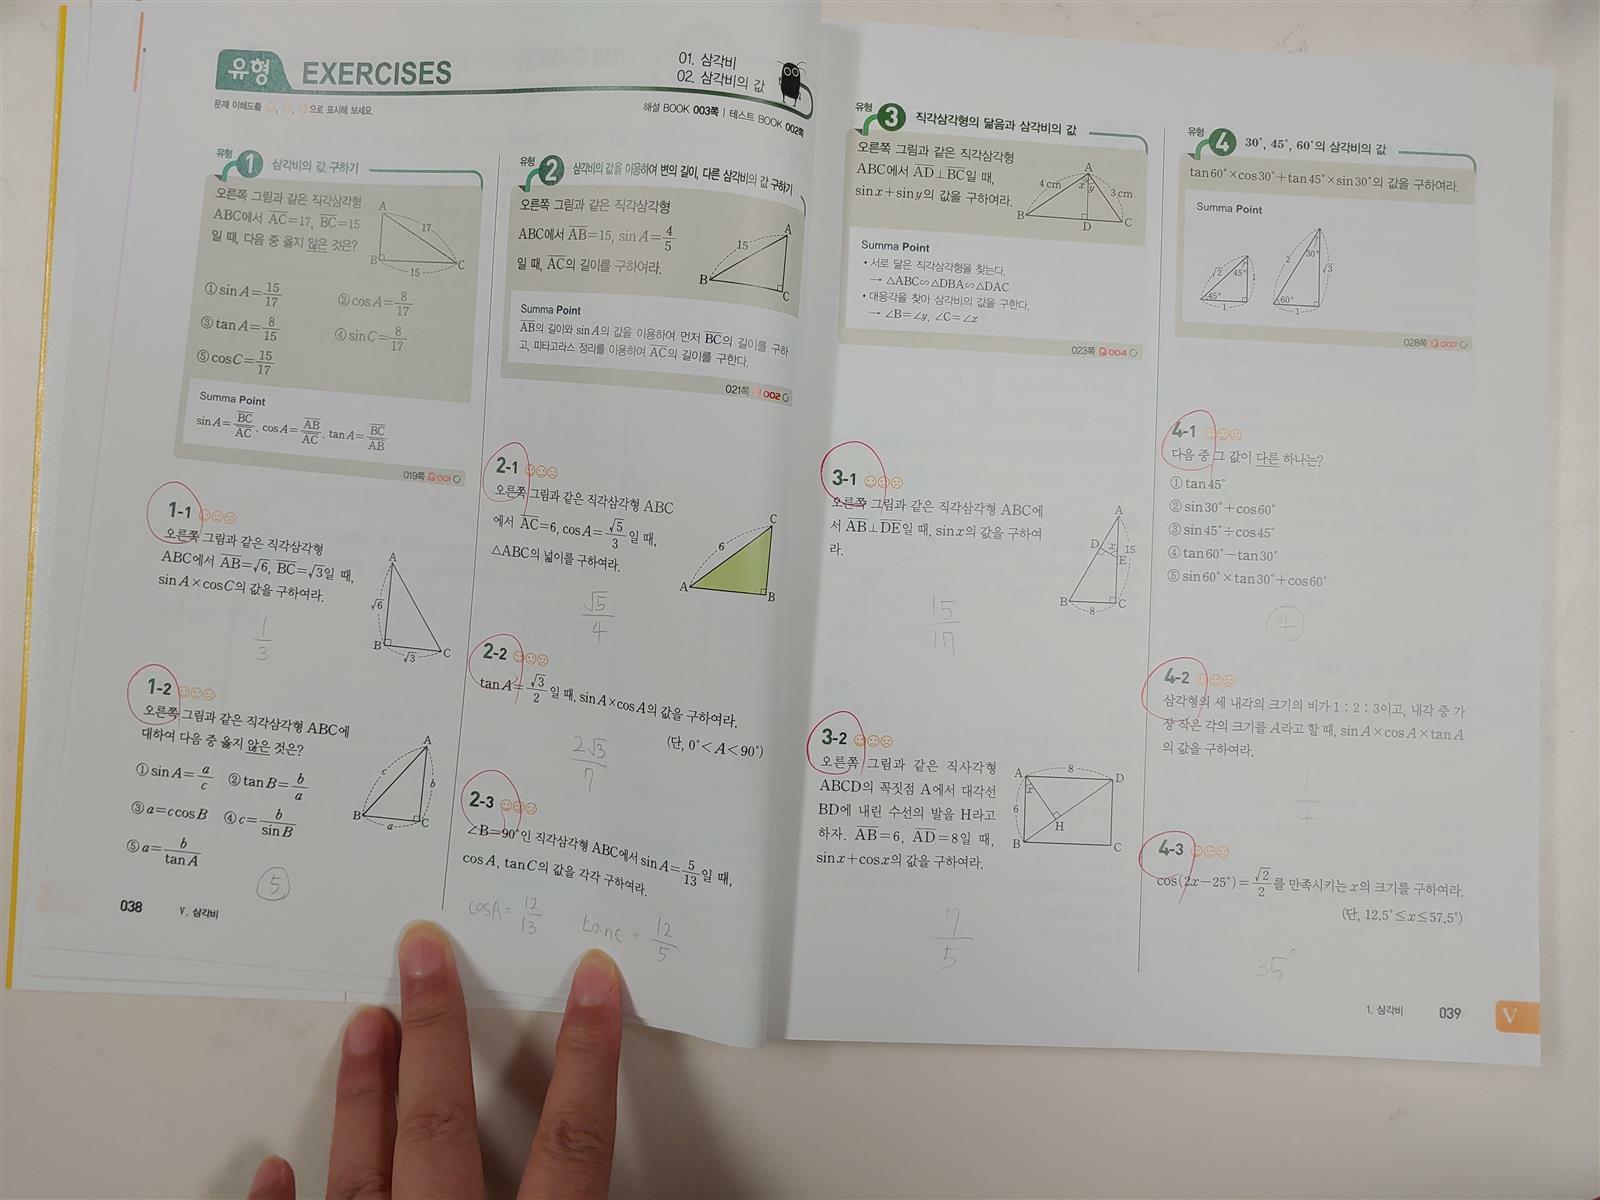 유형 EXERCISES
01. 삼각비
02. 삼각비의 값
문제 이해도를 😊, 😐, ☹으로 표시해 보세요.
해설 BOOK 003쪽 | 테스트 BOOK 002쪽
유형 1 삼각비의 값 구하기
오른쪽 그림과 같은 직각삼각형
ABC에서 AC=17, BC=15
일 때, 다음 중 옳지 않은 것은?
A
17
B
15
C
① sin A=15/17 ② cos A=8/17
③ tan A=8/15 ④ sin C=8/17
⑤ cos C=15/17
Summa Point
sin A=BC/AC, cos A=AB/AC, tan A=BC/AB
019쪽 Q 001
1-1
오른쪽 그림과 같은 직각삼각형
ABC에서 AB=√6, BC=√3일 때,
sin A×cos C의 값을 구하여라.
A
√6
B
√3
C
1/3
1-2
오른쪽 그림과 같은 직각삼각형 ABC에
대하여 다음 중 옳지 않은 것은?
① sin A=a/c ② tan B=b/a
③ a=c cos B ④ c=b/sin B
⑤ a=b/tan A
A
c
b
B
a
C
⑤
038 V. 삼각비
유형 2 삼각비의 값을 이용하여 변의 길이, 다른 삼각비의 값 구하기
오른쪽 그림과 같은 직각삼각형
ABC에서 AB=15, sin A=4/5
일 때, AC의 길이를 구하여라.
A
15
B
C
Summa Point
AB의 길이와 sin A의 값을 이용하여 먼저 BC의 길이를 구하
고, 피타고라스 정리를 이용하여 AC의 길이를 구한다.
021쪽 Q 002
2-1
오른쪽 그림과 같은 직각삼각형 ABC
에서 AC=6, cos A=√5/3일 때,
△ABC의 넓이를 구하여라.
C
6
A
B
√5/4
2-2
tan A=√3/2일 때, sin A×cos A의 값을 구하여라.
(단, 0°<A<90°)
2√3/7
2-3
∠B=90°인 직각삼각형 ABC에서 sin A=5/13일 때,
cos A, tan C의 값을 각각 구하여라.
cosA=12/13 tanc=12/5
유형 3 직각삼각형의 닮음과 삼각비의 값
오른쪽 그림과 같은 직각삼각형
ABC에서 AD⊥BC일 때,
sin x+sin y의 값을 구하여라.
A
4 cm
x
y
3 cm
B
D
C
Summa Point
• 서로 닮은 직각삼각형을 찾는다.
→ △ABC∽△DBA∽△DAC
• 대응각을 찾아 삼각비의 값을 구한다.
→ ∠B=∠y, ∠C=∠x
023쪽 Q 004
3-1
오른쪽 그림과 같은 직각삼각형 ABC에
서 AB⊥DE일 때, sin x의 값을 구하여
라.
A
D
x
15
E
B
8
C
15/17
3-2
오른쪽 그림과 같은 직사각형
ABCD의 꼭짓점 A에서 대각선
BD에 내린 수선의 발을 H라고
하자. AB=6, AD=8일 때,
sin x+cos x의 값을 구하여라.
A
8
D
x
6
H
B
C
7/5
유형 4 30°, 45°, 60°의 삼각비의 값
tan 60°×cos 30°+tan 45°×sin 30°의 값을 구하여라.
Summa Point
√2
45°
1
45°
1
2
30°
√3
60°
1
028쪽 Q 007
4-1
다음 중 그 값이 다른 하나는?
① tan 45°
② sin 30°+cos 60°
③ sin 45°÷cos 45°
④ tan 60°-tan 30°
⑤ sin 60°×tan 30°+cos 60°
④
4-2
삼각형의 세 내각의 크기의 비가 1 : 2 : 3이고, 내각 중 가
장 작은 각의 크기를 A라고 할 때, sin A×cos A×tan A
의 값을 구하여라.
1/4
4-3
cos(2x-25°)=√2/2를 만족시키는 x의 크기를 구하여라.
(단, 12.5°≤x≤57.5°)
35°
1. 삼각비 039
V